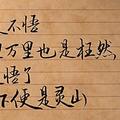 不悟
万里也是枉然
悟了
下便是灵山